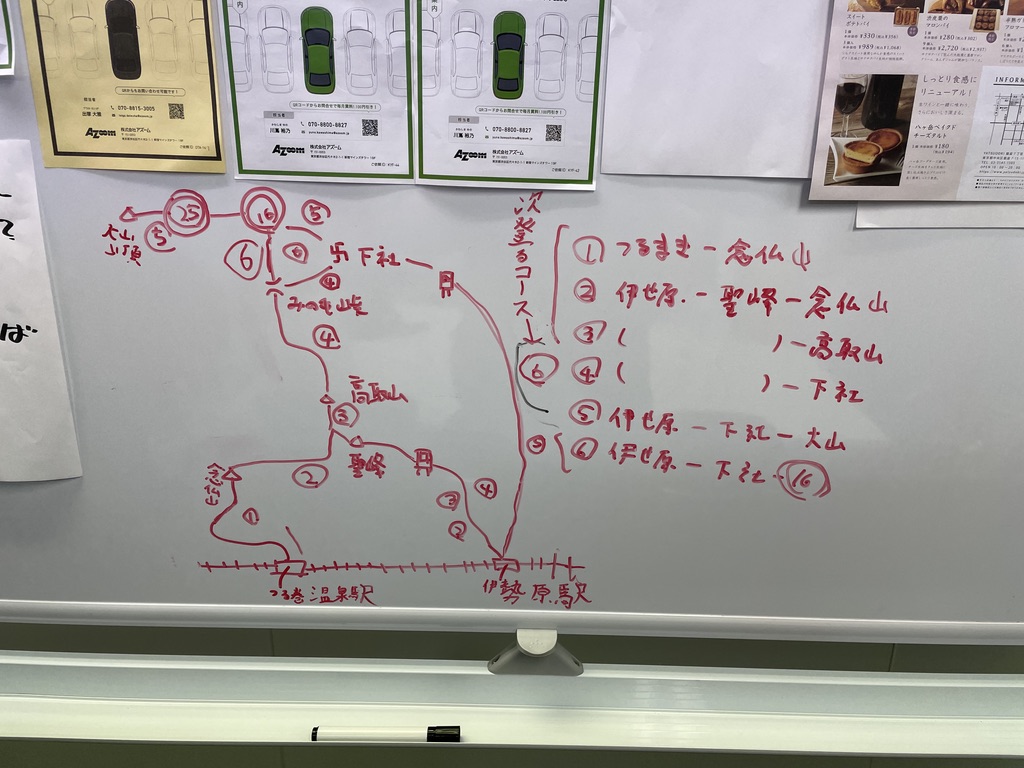 QRからもお問い合わせ可能です!
担当者
070-8815-3005
Azoom
株式会社アズーム
QRコードからお問合せで毎月賃料(100円引き!
担当者
070-8800-8827
Azoom
株式会社アズーム
QRコードからお問合せで毎月賃料(100円引き!
担当者
070-8800-8827
Azoom
株式会社アズーム
スイート
ポテトパイ
¥330
¥989
渋皮栗の
マロンパイ
¥280
¥2,720
しっとり食感に
リニューアル!
八ヶ岳ベイクド
チーズタルト
¥180
INFORM
ば
25
16
⑤
大山
山頂
⑤
⑥
⑥
卍 下社
④
みのげ峠
④
高取山
③
聖峰
念仏山
②
①
③
④
②
つる巻温泉駅
伊勢原駅
次登るコース
① つるまき－念仏山
② 伊せ原－聖峰－念仏山
③ ( )－高取山
⑥
④ ( )－下社
⑤ 伊せ原－下社－大山
⑤
⑥ 伊せ原－下社－⑯